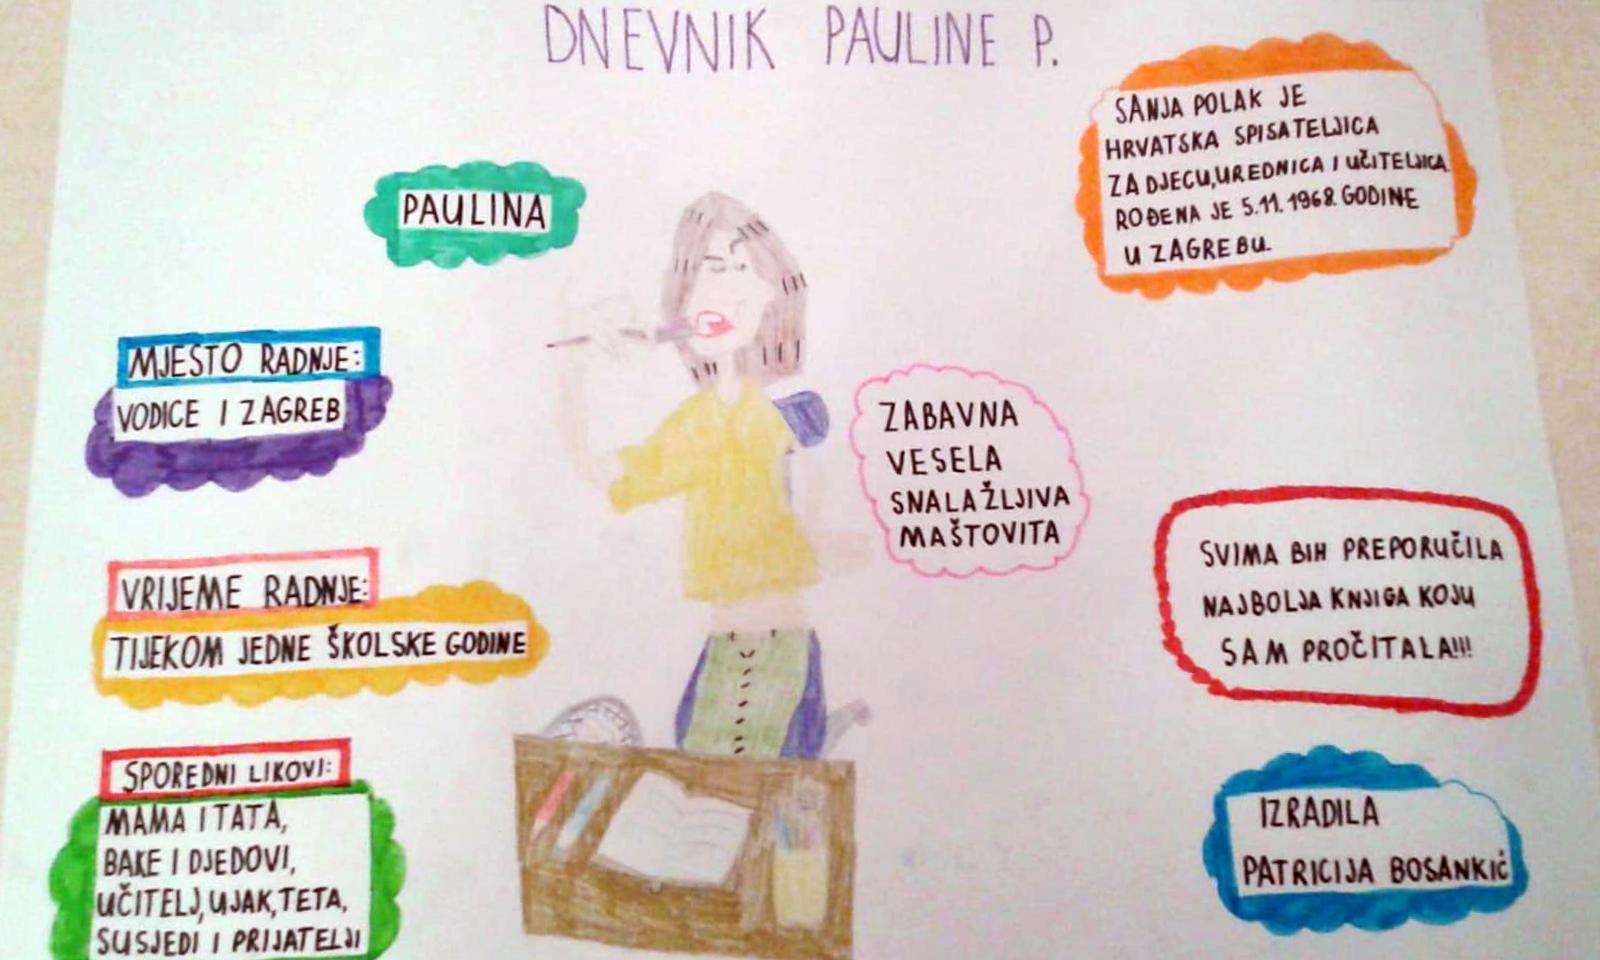 DNEVNIK PAULINE P.
SANJA POLAK JE
HRVATSKA SPISATELJICA
ZA DJECU, UREDNICA I UČITELJICA.
ROĐENA JE 5.11.1968. GODINE
U ZAGREBU.
PAULINA
MJESTO RADNJE:
VODICE I ZAGREB
ZABAVNA
VESELA
SNALAŽLJIVA
MAŠTOVITA
VRIJEME RADNJE:
TIJEKOM JEDNE ŠKOLSKE GODINE
SVIMA BIH PREPORUČILA
NAJBOLJA KNJIGA KOJU
SAM PROČITALA!!!
SPOREDNI LIKOVI:
MAMA I TATA,
BAKE I DJEDOVI,
UČITELJ, UJAK, TETA,
SUSJEDI I PRIJATELJI
IZRADILA
PATRICIJA BOSANKIĆ